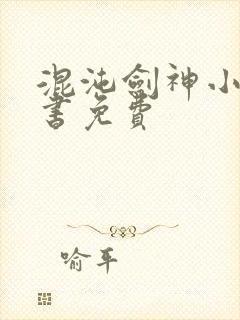 混沌剑神小
书免费
喻平